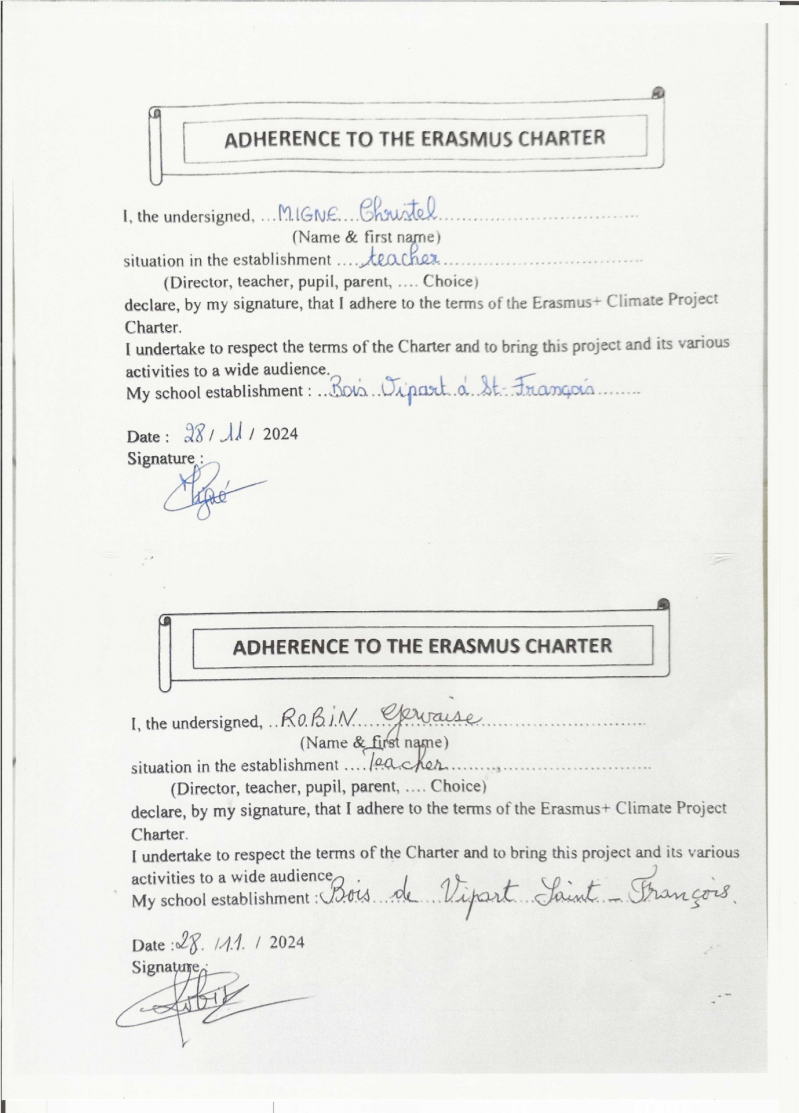 ADHERENCE TO THE ERASMUS CHARTER
I, the undersigned, ...MIGNE....Christel..............................
(Name & first name)
situation in the establishment .....teacher..............................
(Director, teacher, pupil, parent, .... Choice)
declare, by my signature, that I adhere to the terms of the Erasmus+ Climate Project
Charter.
I undertake to respect the terms of the Charter and to bring this project and its various
activities to a wide audience.
My school establishment : ...Bois..Vipart..à..St-François.........
Date : 28/11/ 2024
Signature :
Migné
ADHERENCE TO THE ERASMUS CHARTER
I, the undersigned, ..ROBiN....Gervaise..............................
(Name & first name)
situation in the establishment ....Teacher..............................
(Director, teacher, pupil, parent, .... Choice)
declare, by my signature, that I adhere to the terms of the Erasmus+ Climate Project
Charter.
I undertake to respect the terms of the Charter and to bring this project and its various
activities to a wide audience.
My school establishment :Bois...de...Vipart..Saint-François.
Date :28. /11. / 2024
Signature :
Robin